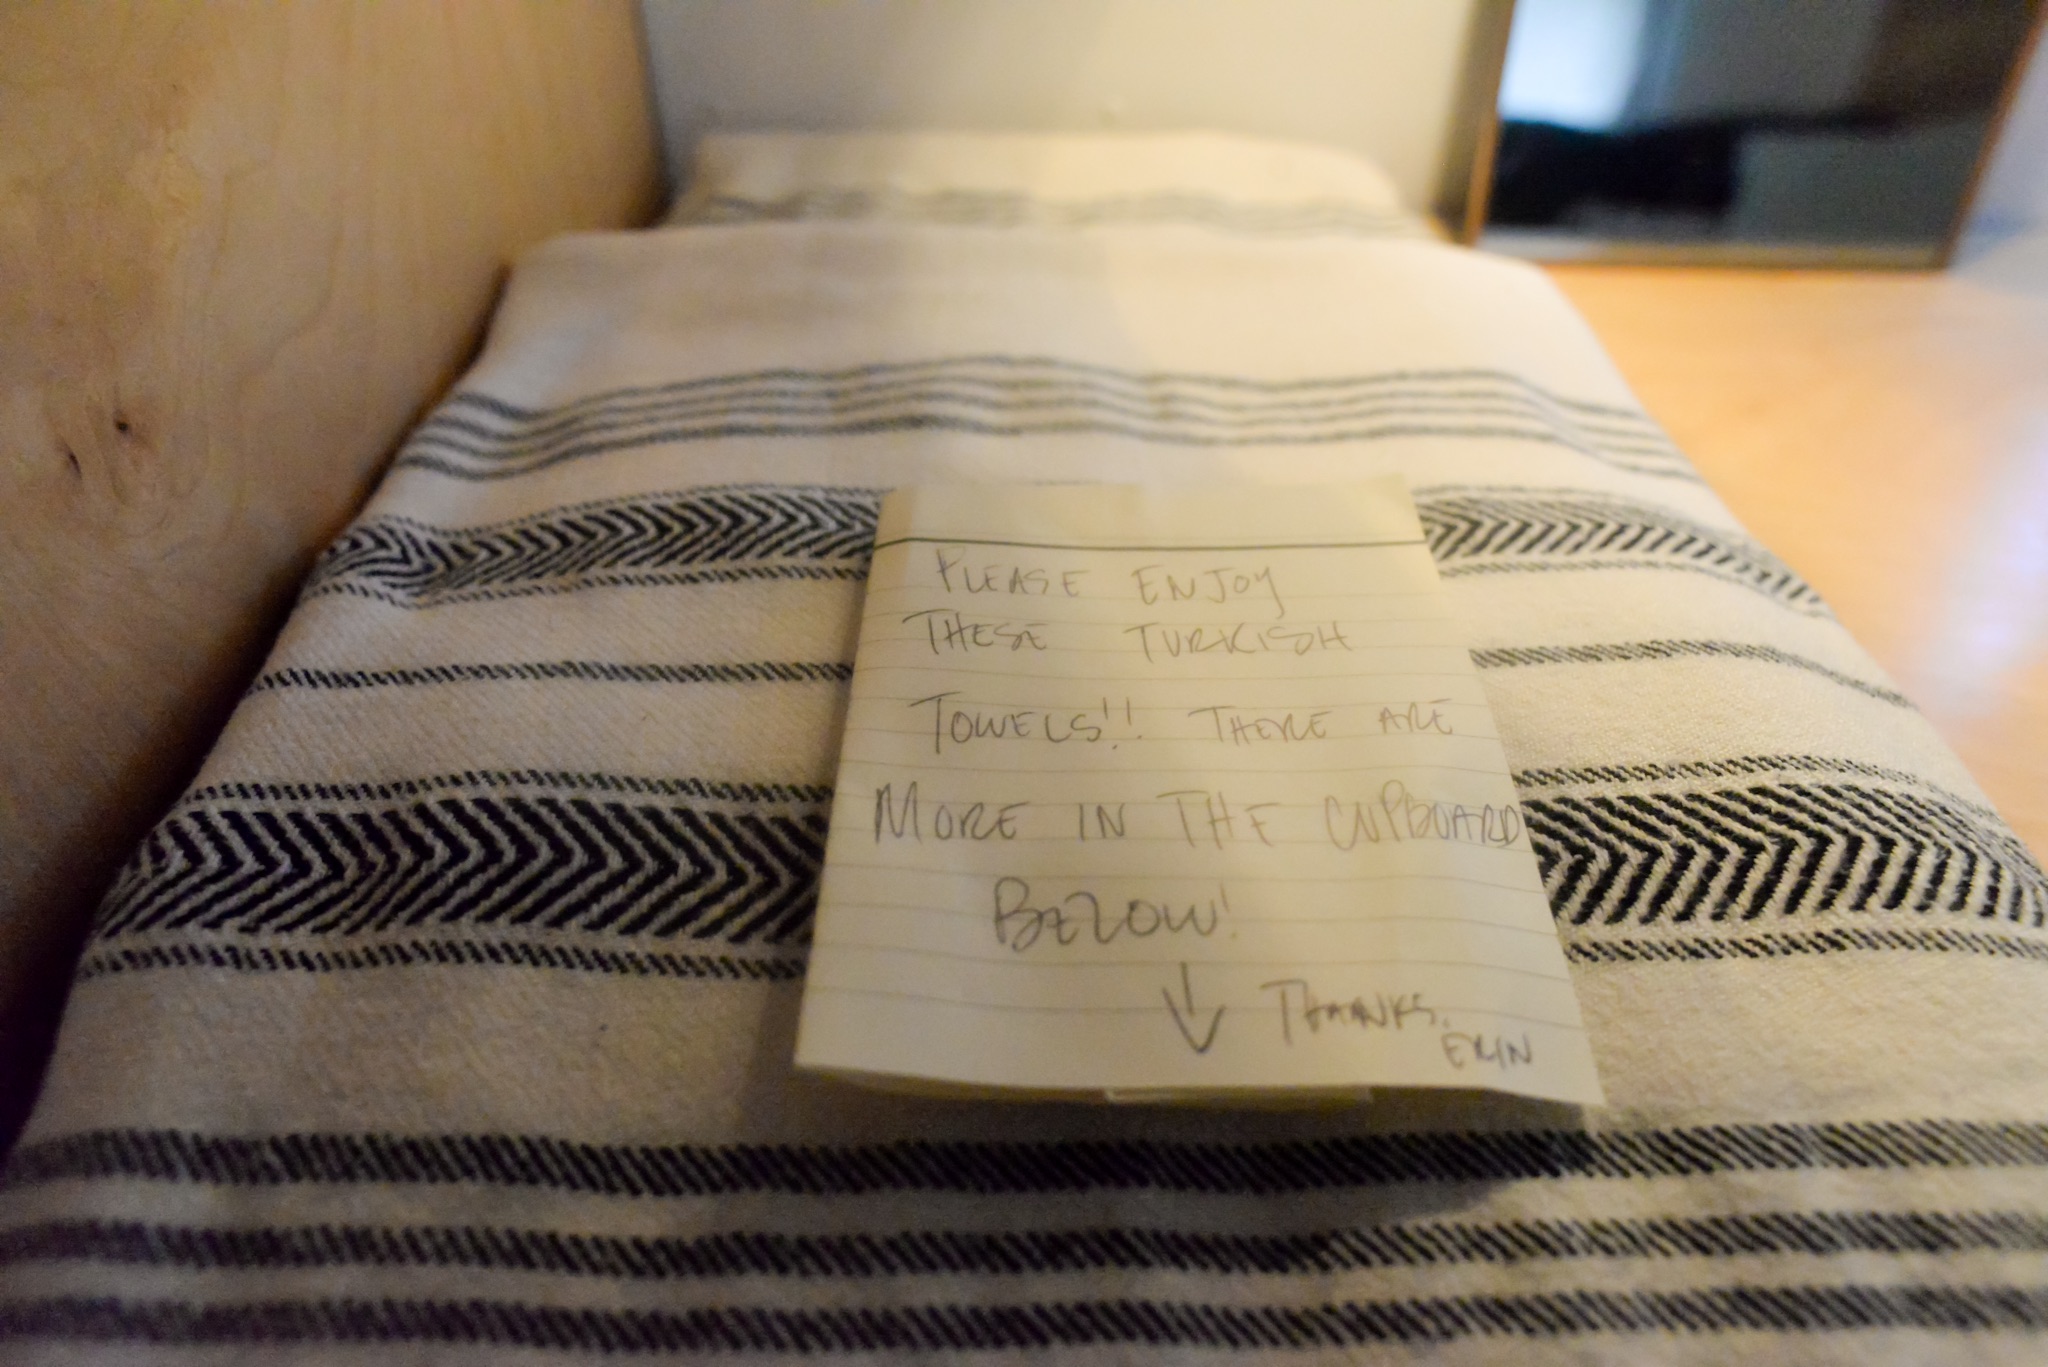 PLEASE ENJOY
THESE TURKISH
TOWELS!! THERE ARE
MORE IN THE CUPBOARD
BELOW!
↓ THANKS,
ERIN